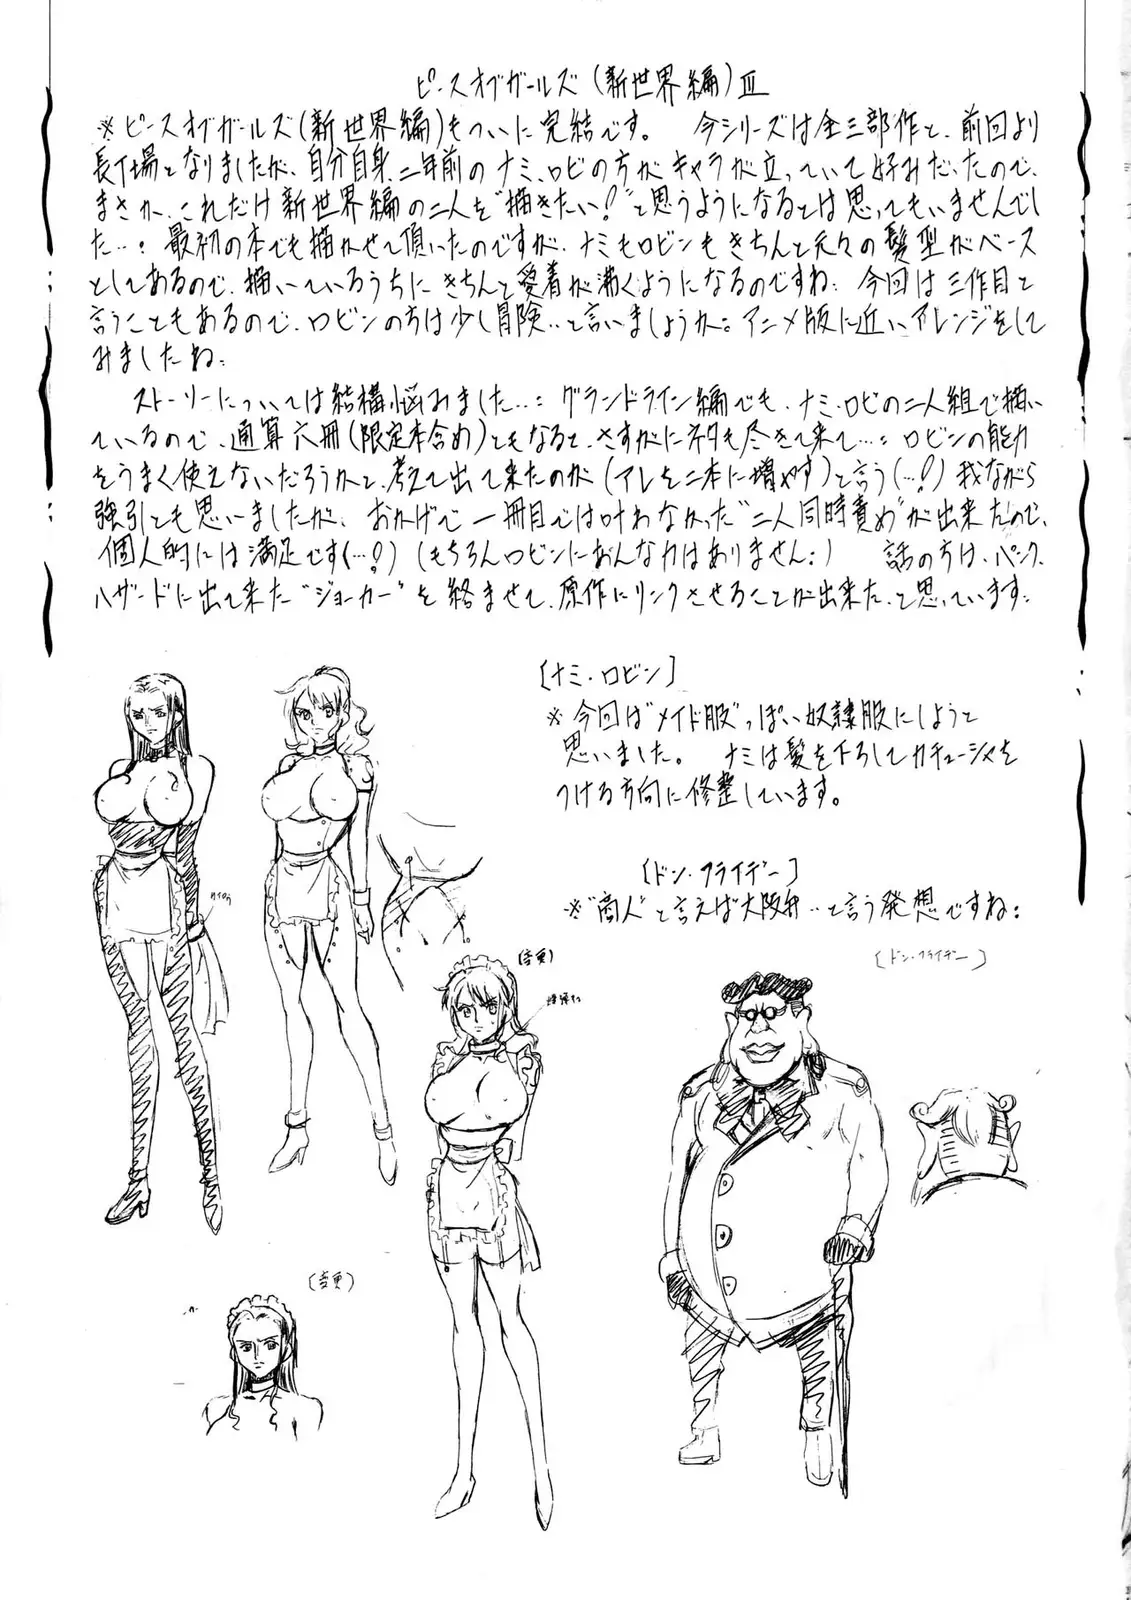 ピースオブガールズ(新世界編)Ⅲ
※ピースオブガールズ(新世界編)もついに完結です。 今シリーズは全三部作と、前回より
長丁場となりましたが、自分自身、二年前のナミ、ロビの方がキャラが立っていて好みだったので、
まさか、これだけ新世界編の二人を"描きたい!"と思うようになるとは思ってもいませんでし
た…: 最初の本でも描かせて頂いたのですが、ナミもロビンもきちんと元々の髪型がベース
としてあるので、描いているうちにきちんと愛着が沸くようになるのですね: 今回は三作目と
言うこともあるので、ロビンの方は少し冒険‥と言いましょうか。アニメ版に近いアレンジをして
みましたね:
ストーリーについては結構悩みました…: グランドライン編でも、ナミ、ロビの二人組で描い
ているので、通算六冊(限定本含め)ともなると、さすがにネタも尽きて来て…: ロビンの能力
をうまく使えないだろうかと、考えて出て来たのが(アレを二本に増やす)と言う(…!)我ながら
強引とも思いましたが、おかげで一冊目では叶わなかった"二人同時責め"が出来たので、
個人的には満足です(…!)(もちろんロビンにあんな力はありません:) 話の方は、パンク
ハザードに出て来た"ジョーカー"を絡ませて、原作にリンクさせることが出来た、と思っています:
[ナミ・ロビン]
※今回は"メイド服"っぽい奴隷服にしようと
思いました。 ナミは髪を下ろしてカチューシャを
つける方向に修整しています。
[ドン・フライデー]
※"商人"と言えば大阪弁‥と言う発想ですね:
[ドン・フライデー]
(変更)
(変更)